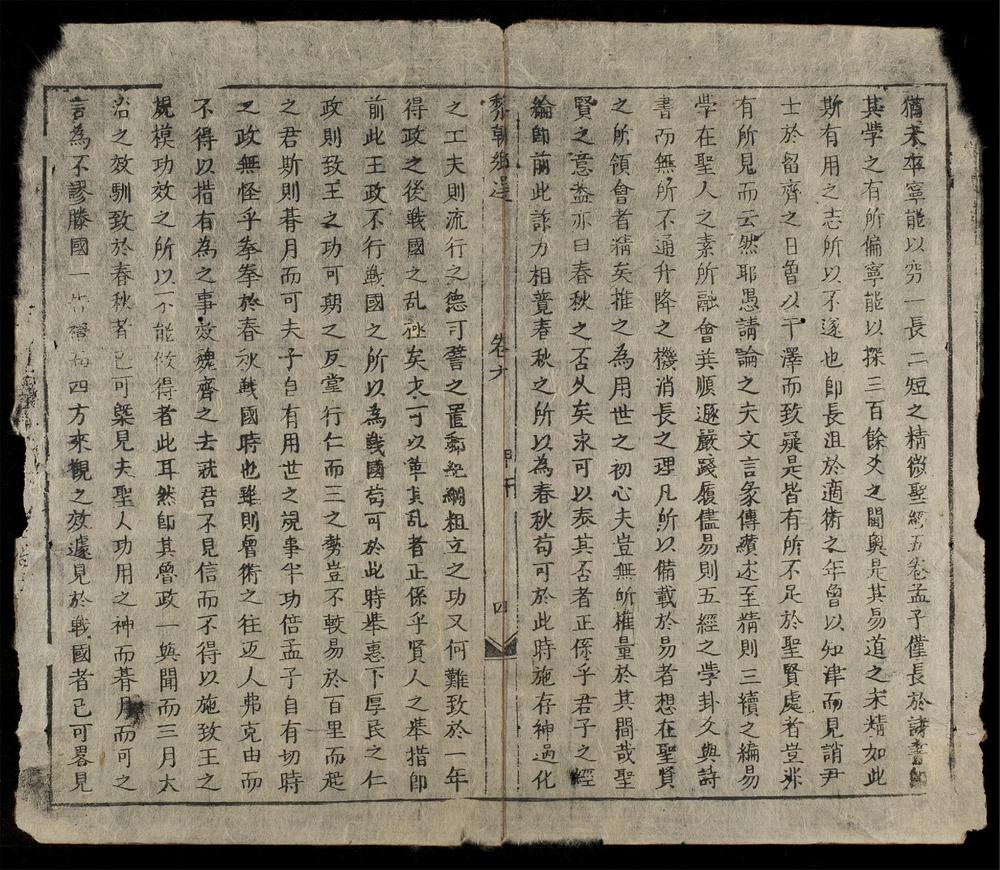 猶未卒寧能以窮一長二短之精微聖經五卷孟子僅長於詩書
其學之有所偏寧能以探三百餘爻之閫奧是其易道之未精如此
斯有用之志所以不遂也即長沮於適術之年曾以知津而見誚尹
士於留齊之日曾以干澤而致疑是皆有所不足於聖賢處者豈非
有所見而云然耶愚請論之夫文言彖傳纘述至精則三續之編易
學在聖人之素所融會巽順遜嚴踐履儘易則五經之學卦爻與詩
書而無所不通升降之機消長之理凡所以備載於易者想在聖賢
之所領會者精矣推之為用世之初心夫豈無所權量於其間哉聖
賢之意盖亦曰春秋之否久矣求可以泰其否者正係乎君子之經
綸即前此詐力相竟春秋之所以為春秋苟可於此時施存神過化
黎朝鄉選 卷六 四
之工夫則流行之德可譬之置郵紀綱粗立之功又何難致於一年
得政之後戰國之乱極矣求可以革其乱者正係乎賢人之舉措即
前此王政不行戰國之所以為戰國苟可於此時舉惠下厚民之仁
政則致王之功可期之反堂行仁而三之勢豈不較易於百里而起
之君斯則朞月而可夫子自有用世之說事半功倍孟子自有切時
之政無怪乎拳拳於春秋戰國時也雖則魯術之往迈人弗克由而
不得以措有為之事效魏齊之去就君不見信而不得以施致王之
規模功效之所以不能做得者此耳然即其魯政一與聞而三月大
治之效馴致於春秋者已可槩見夫聖人功用之神而朞月而可之
言為不謬滕國一 四方來觀之效遽見於戰國者已可畧見